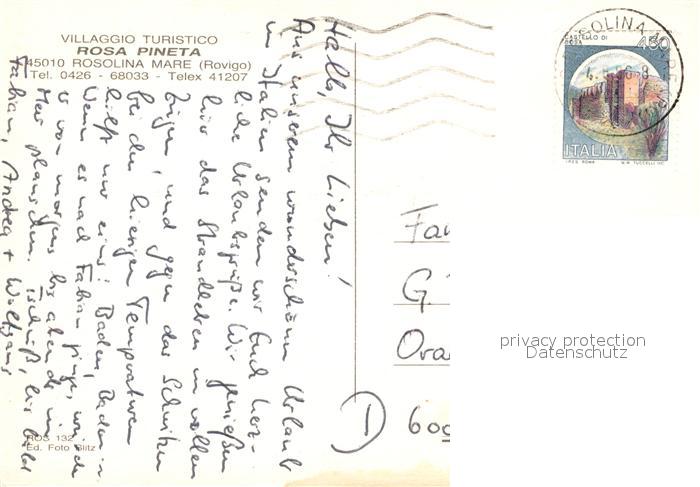 VILLAGGIO TURISTICO
ROSA PINETA
45010 ROSOLINA MARE (Rovigo)
Tel. 0426 - 68033 - Telex 41207
Hallo, Ihr Lieben!
Aus unserem wunderschönen Urlaub
in Italien senden wir Euch herz-
liche Urlaubsgrüße. Wir genießen
hier das Strandleben in vollen
Zügen, und gegen das Schwitzen
bei den hiesigen Temperaturen
hilft nur eins: Baden, Baden
Wenn es nach Fabian ginge, würde
er von morgens bis abends im
Meer planschen. Tschüß, bis bald
Fabian, Andrea + Wolfgang
ROS 132
Ed. Foto Blitz
CASTELLO DI
450
ITALIA
I.P.Z.S. ROMA
ROSOLINA MARE
Fa
G
Ora
I
600
privacy protection
Datenschutz